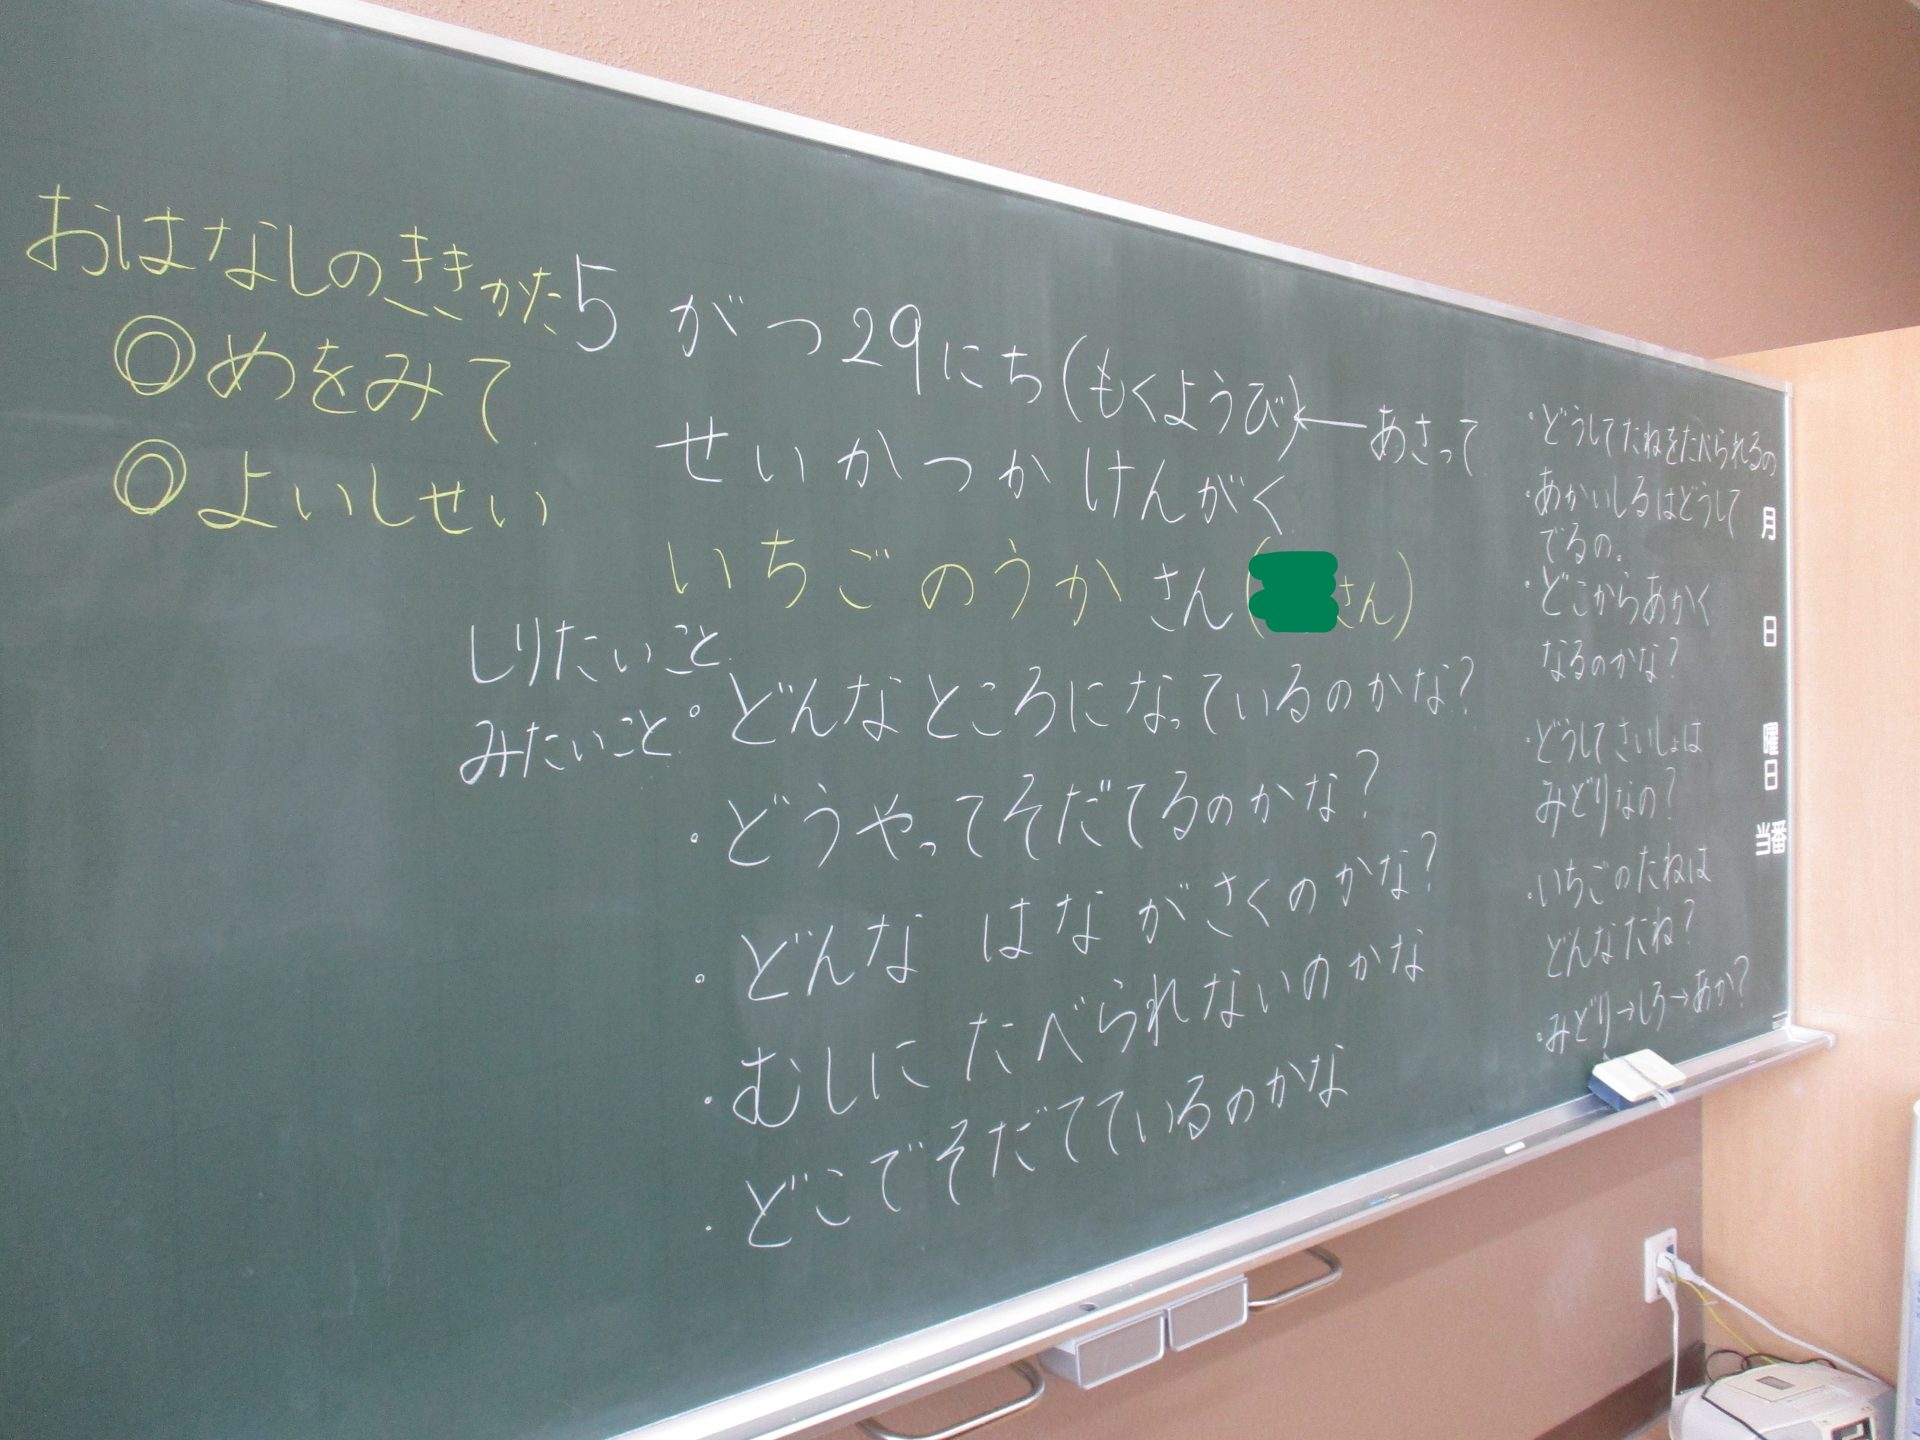 おはなしのききかた
◎めをみて
◎よいしせい
5がつ29にち(もくようび)←あさって
せいかつかけんがく
いちごのうかさん(さん)
しりたいこと
みたいこと
・どんなところになっているのかな?
・どうやってそだてるのかな?
・どんな はながさくのかな?
・むしに たべられないのかな
・どこでそだてているのかな
・どうしてたねをたべられるの
・あかいしるはどうして
でるの。
・どこからあかく
なるのかな?
・どうしてさいしょは
みどりなの?
・いちごのたねは
どんなたね?
・みどり→しろ→あか?
月
日
曜日
当番